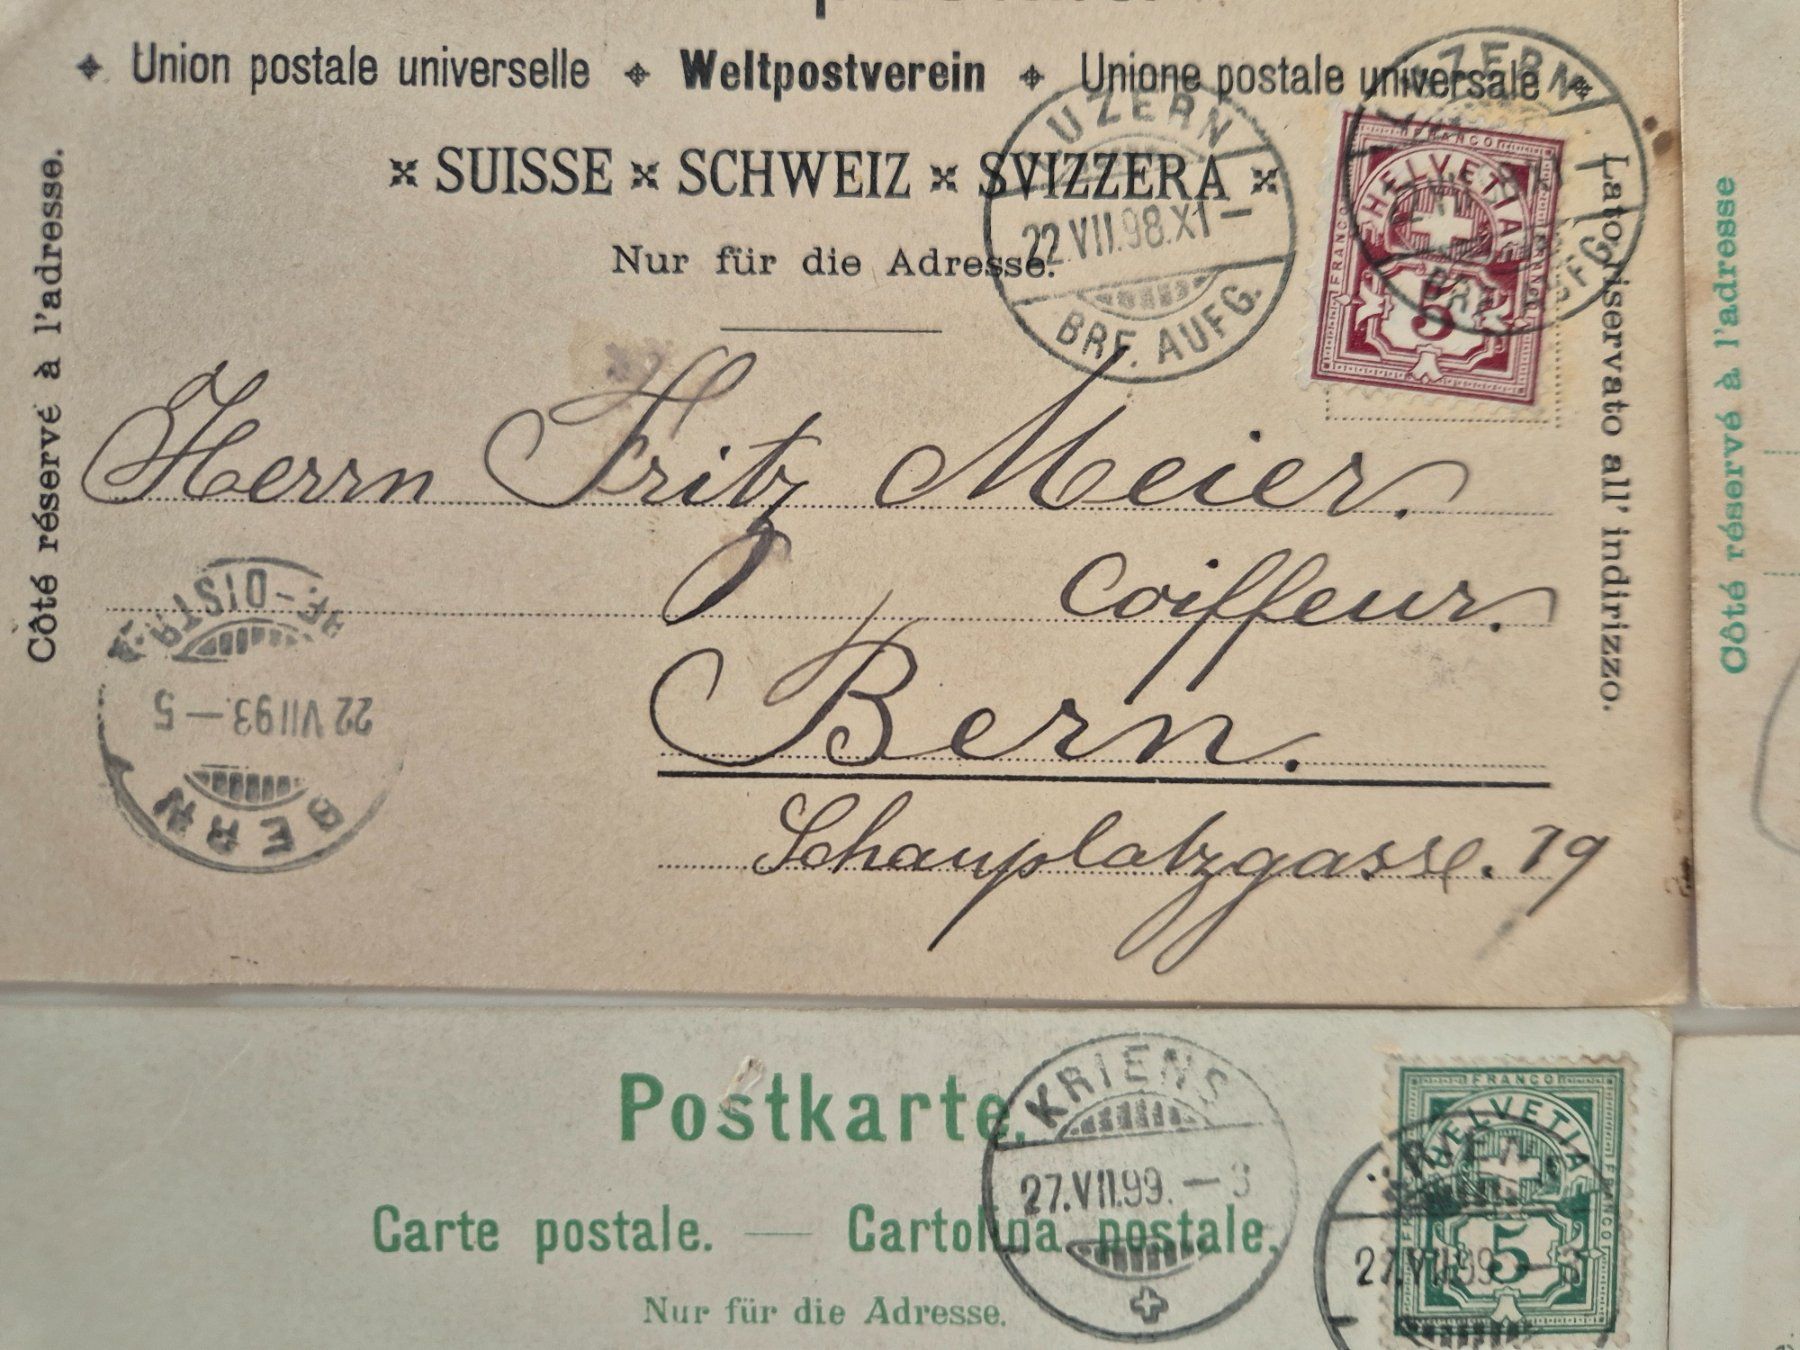 Union postale universelle Weltpostverein Unione postale universale
SUISSE SCHWEIZ SVIZZERA
Nur für die Adresse.
Côté réservé à l'adresse.
Lato riservato all' indirizzo.
LUZERN
22.VII.98.XI-
BRF. AUFG.
LUZERN
FRANCO
HELVETIA
FRANCO
FRANCO
5
Herrn Fritz Meier.
Coiffeur.
Bern.
Schauplatzgasse. 19
BRF.-DISTR.
22 VII 93.-5
BERN
Côté réservé à l'adresse
Postkarte.
Carte postale. — Cartolina postale.
Nur für die Adresse.
KRIENS
27.VII.99.-3
FRANCO
HELVETIA
FRANCO
5
27.VII.99